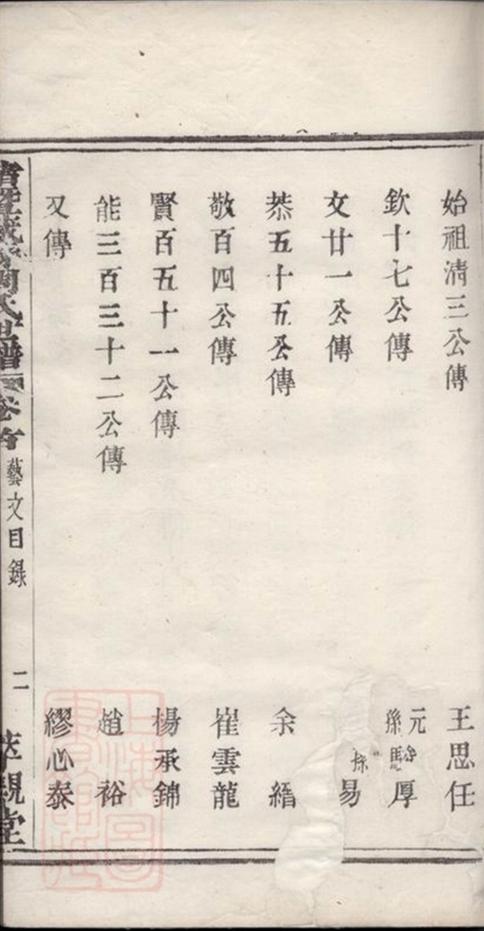 始祖淸三公傳 王思任
欽十七公傳 元 孫 厚
文廿一公傳 易
恭五十五公傳 余縉
敬百四公傳 崔雲龍
賢百五十一公傳 楊承錦
能三百三十二公傳 趙裕
又傳 繆心泰
氏 譜 卷 藝文目錄 二 親堂